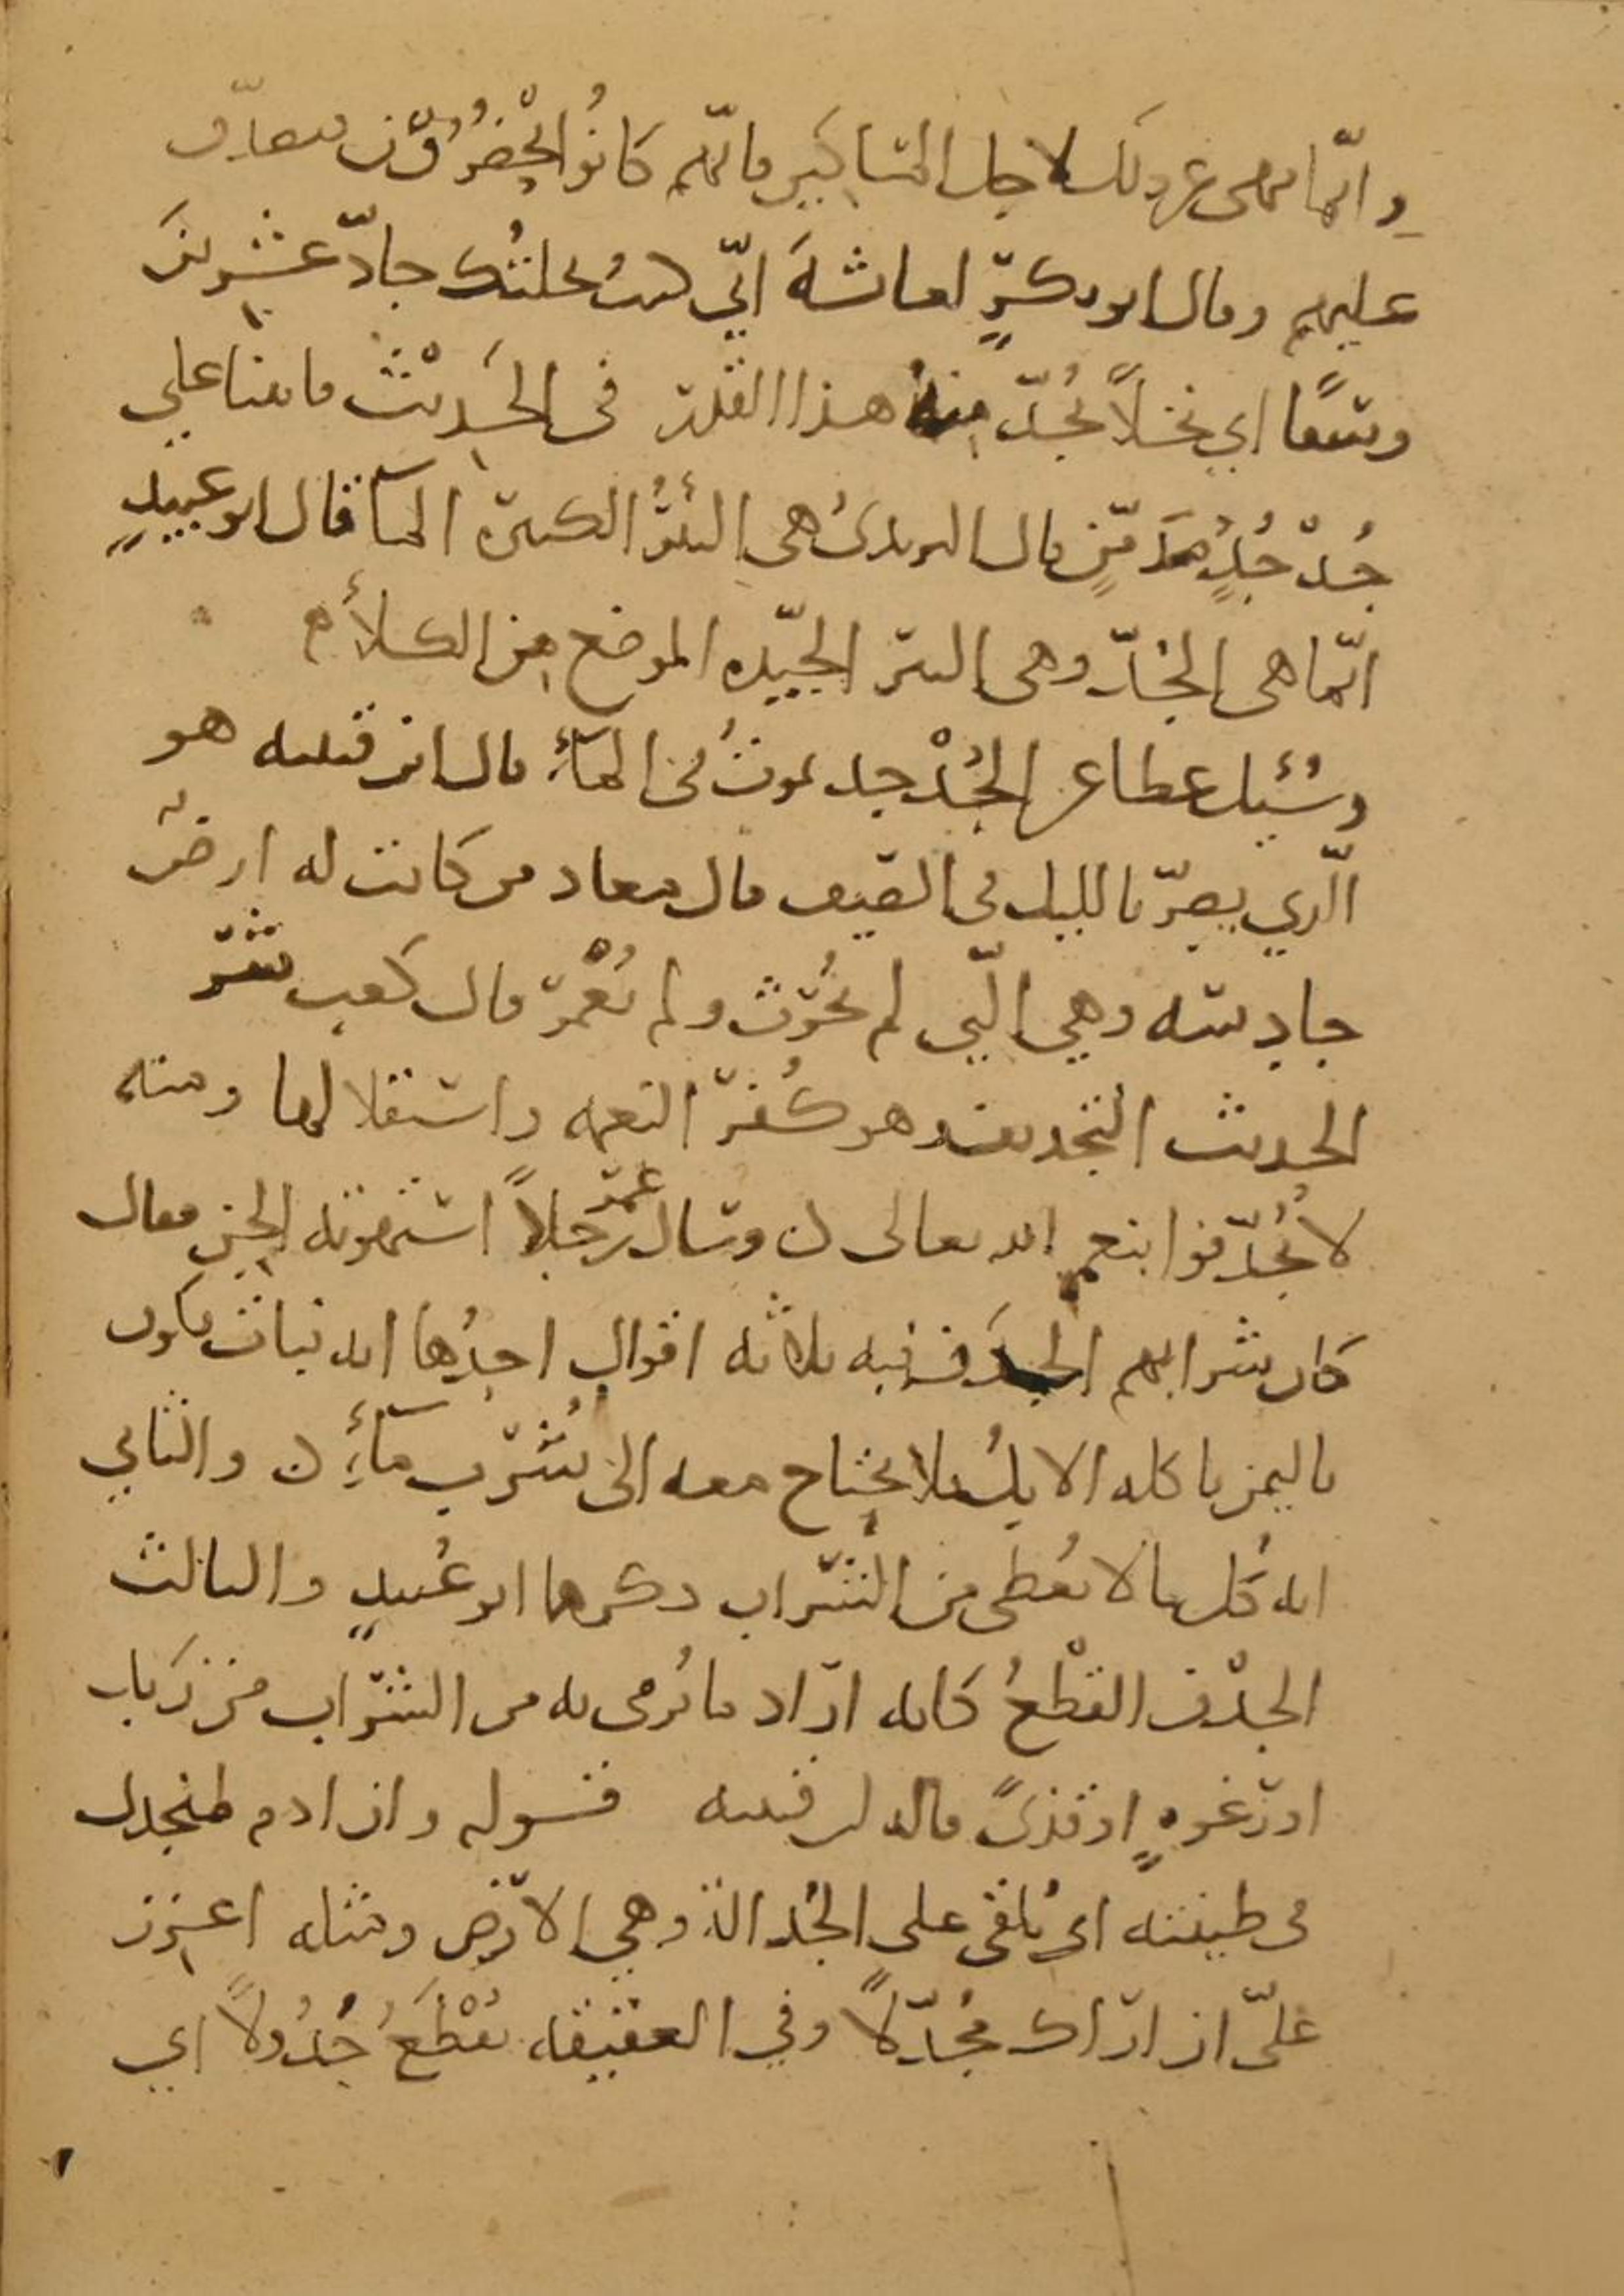 وانّما نهى عن ذلك لاجل المساكين فانّهم كانوا يحضرون فيتصدّق
عليهم وقال ابو بكرٍ لعائشة انّي كنت نحلتك جادّ عشرين
وسقًا اي نخلاً يُجدّ منهُ هذا القدر في الحديث فاتينا على
جُدْجُدٍ مُتَدمّنٍ قال اليزيدي هي البئرُ الكثيرة الماء قال ابو عبيدٍ
انّما هي الجُدّ وهي البئر الجيّده الموضع من الكلأ ه
وسُئِل عطا عن الجُدْجد يموتُ في الماء قال ابن قتيبه هو
الّذي يصِرّ بالليل في الصيف قال معاد من كانت له ارضٌ
جادِسَه وهي الّتي لم تُحْرَث ولم تُعْمر قال كعب شرّ
الحديث التجديف وهو كُفر النعمه واستقلالها ومنه
لا تُجدّفوا بنعم الله تعالى ن وسال عمر رجلاً استهوته الجن فقال
كان شرابهم الجدَف فيه ثلاثه اقوالٍ احدُها انه نبات يكون
باليمن ياكله الابِلُ فلا يحتاج معه الى شُرب ماءٍ ن والثاني
انه كل ما لا يغطى من الشراب ذكرهما ابو عُبيدٍ والثالث
الجدْف القطْعُ كانه اراد ما يُرمى به من الشراب من زَبَد
او رغوهٍ او قذىً قاله ابن قتيبه قوله وان ادم لمنجدل
في طينته اي مُلقى على الجَدالة وهي الارض ومثله اعزز
عليّ ان اراك مُجدّلاً وفي العقيقه تُقْطَعُ جُدُولاً اي